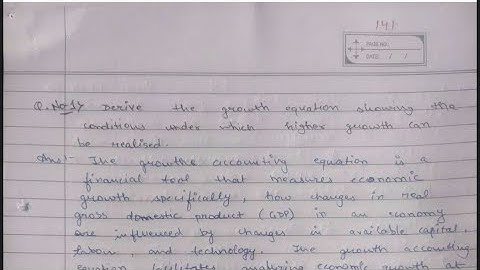 141
PAGE NO.
DATE / /
Q.No-1> Derive the growth equation showing the
conditions under which higher growth can
be realised.
Ans:- The growthe accounting equation is a
financial tool that measures economic
growth specifically, how changes in real
gross domestic product (GDP) in an economy
are influenced by changes in available capital,
labour, and technology. The growth accounting
equation facilitates analyzing economic growth at